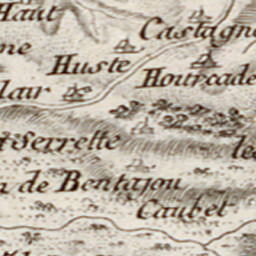 Haut
Castagne
ne
Huste
Hourcade
lair
serrette
le
de Bentajou
Caubet